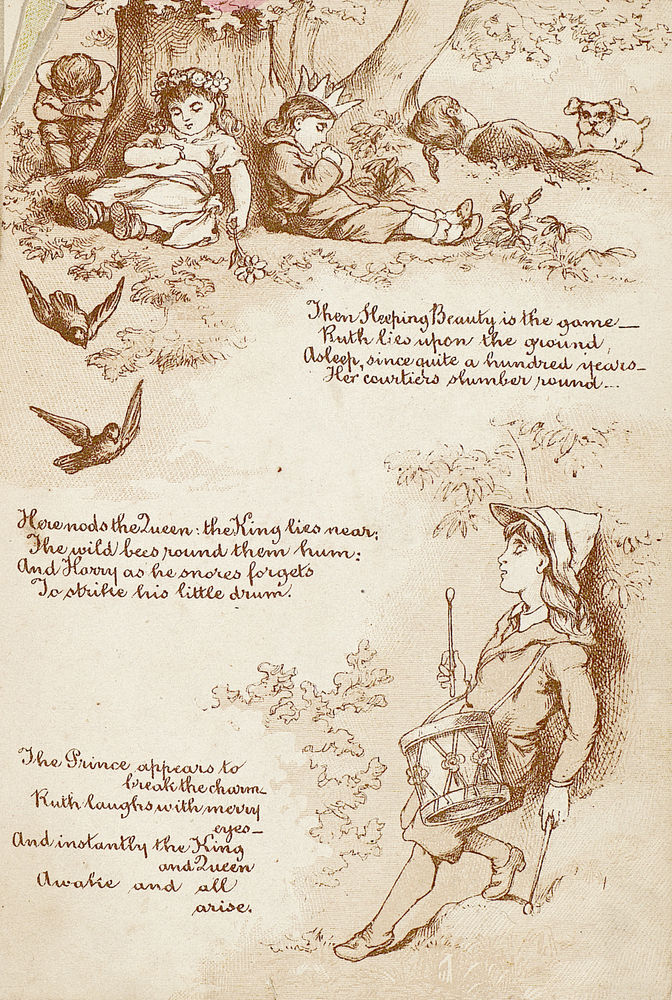 Then Sleeping Beauty is the game—
Ruth lies upon the ground,
Asleep, since quite a hundred years—
Her courtiers slumber round...
Here nods the Queen: the King lies near;
The wild bees round them hum:
And Harry as he snores forgets
To strike his little drum.
The Prince appears to
break the charm—
Ruth laughs with merry
eyes—
And instantly the King
and Queen
Awake and all
arise.